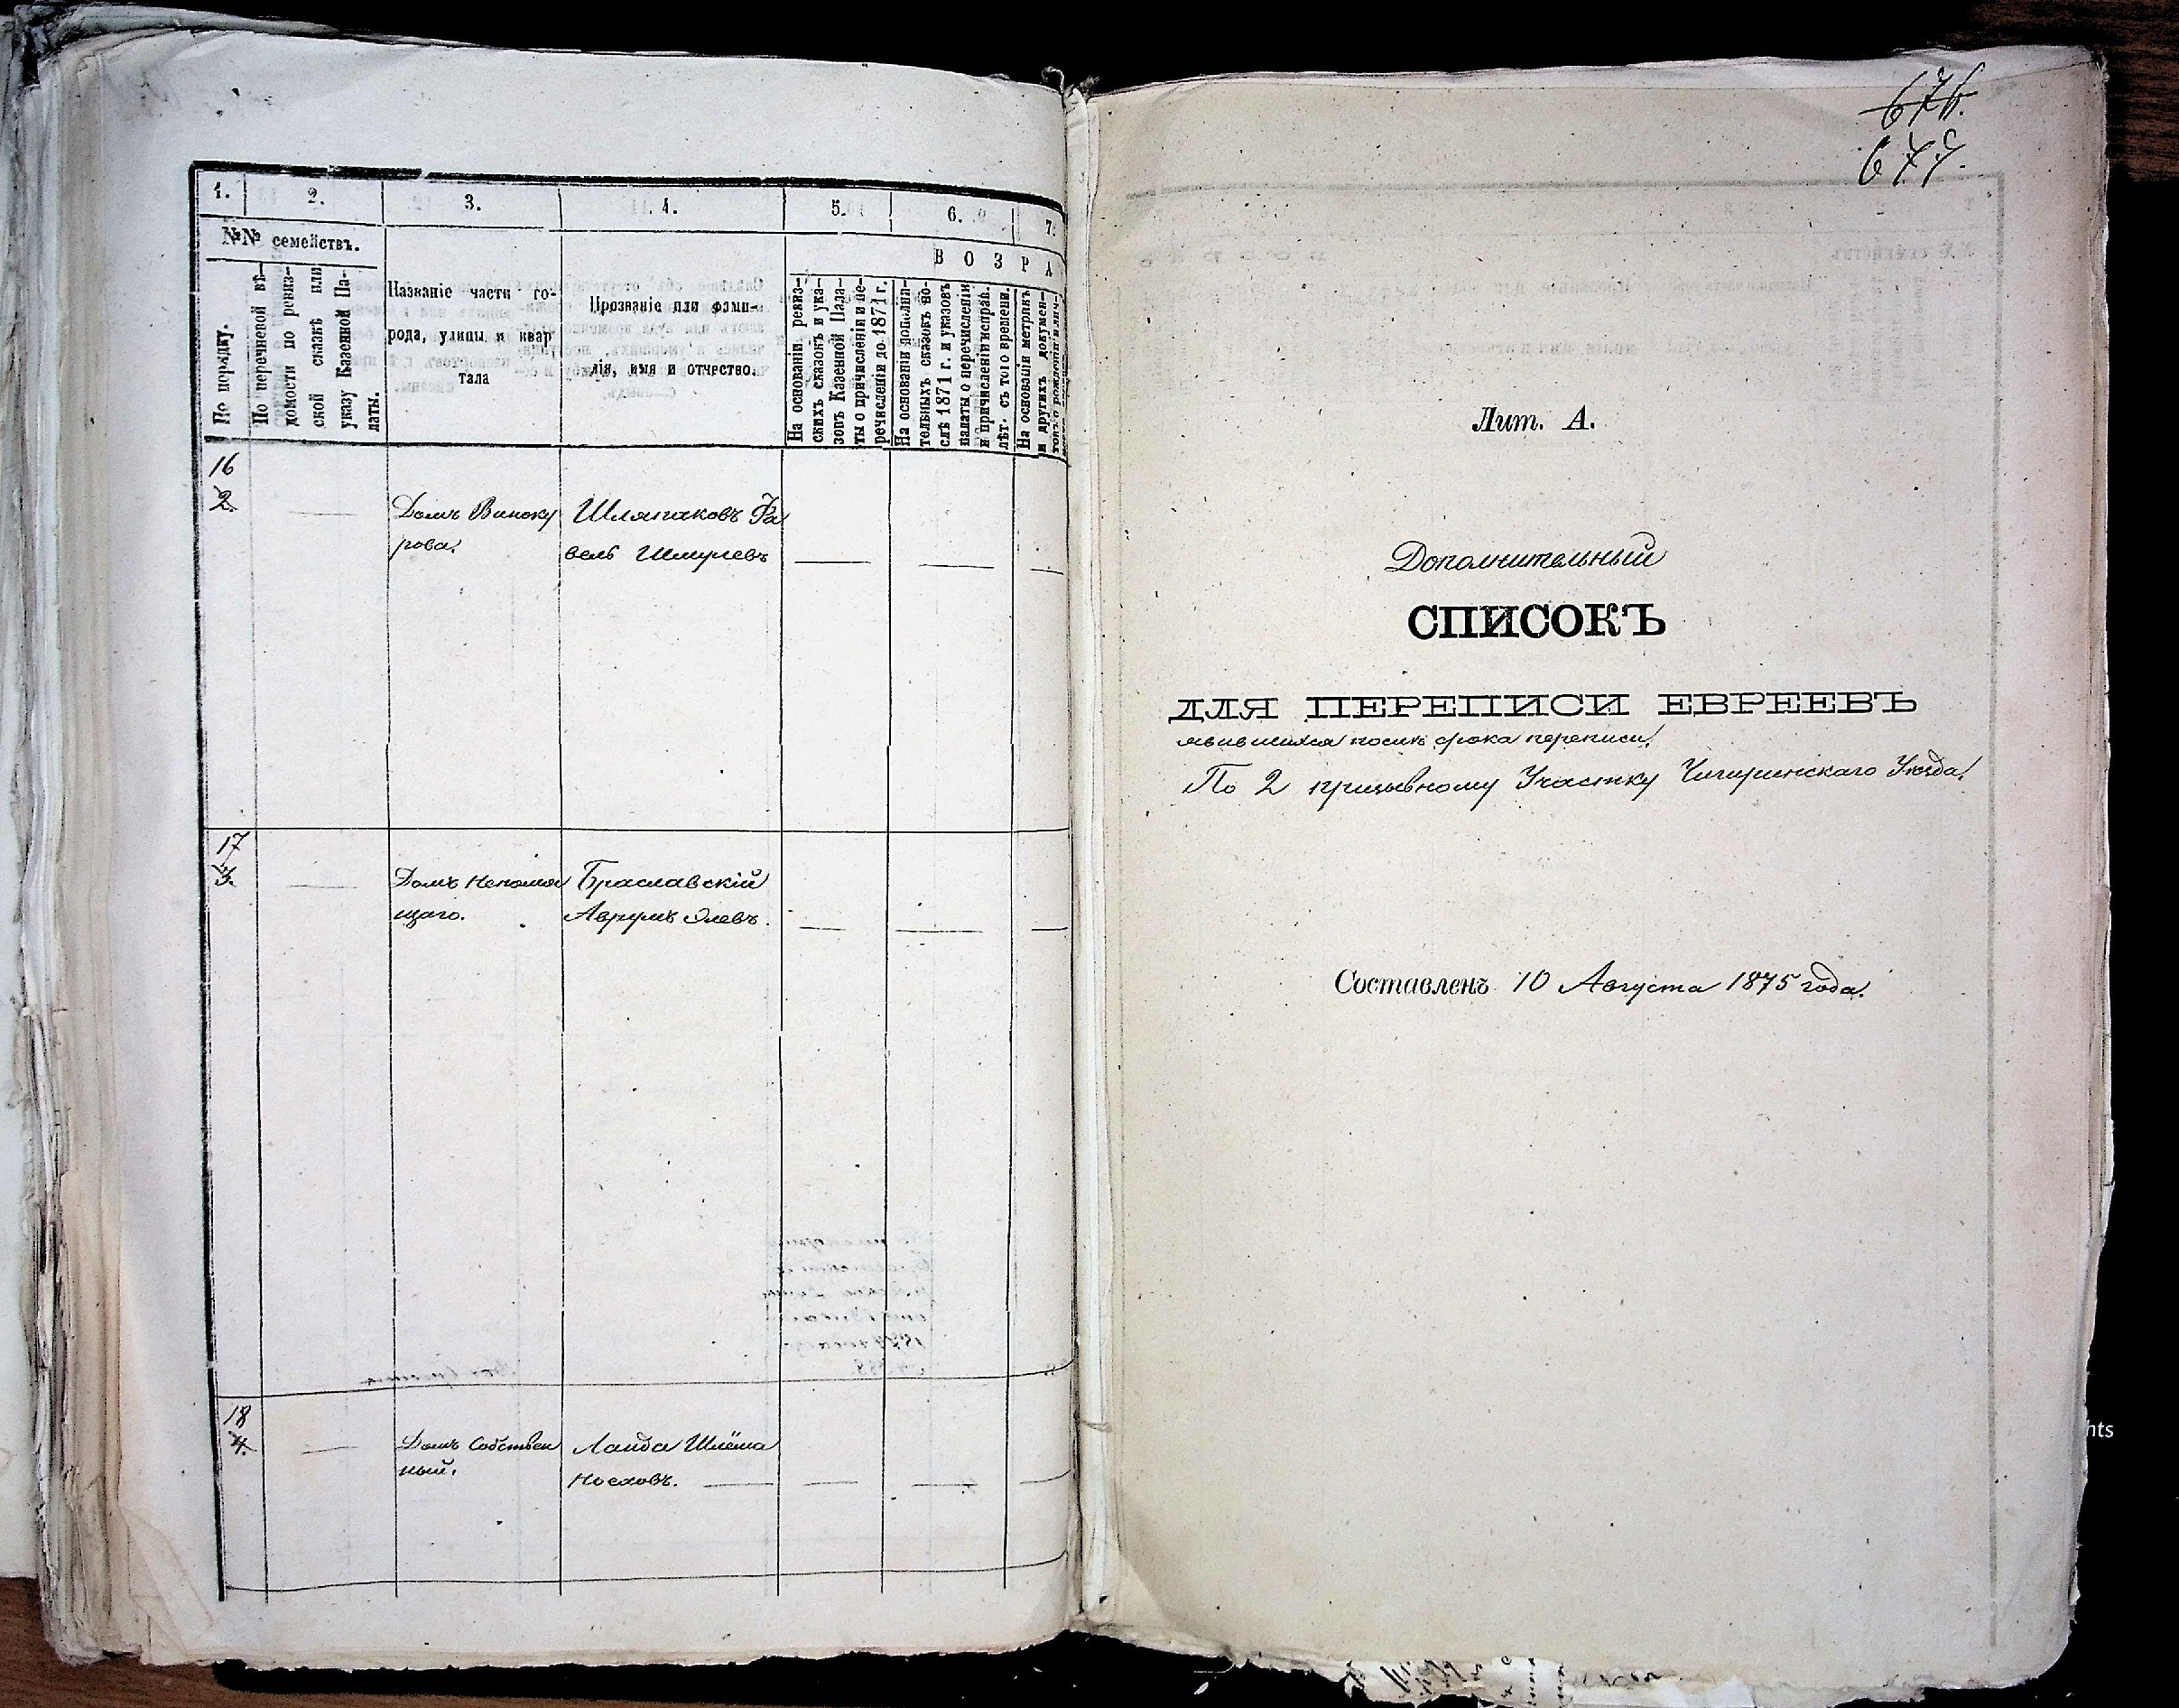 1.
2.
3.
4.
5.
6.
7.
№№ семействъ.
По порядку.
По перечневой вѣ-
домости по ревиз-
ской сказкѣ или
указу Казенной Па-
латы.
Названіе части го-
рода, улицы и квар
тала
Прозваніе или фами-
лія, имя и отчество.
ВОЗРА
На основаніи ревиз-
скихъ сказокъ и ука-
зовъ Казенной Пала-
ты о причисленіи и пе-
речисленіи до 1871 г.
На основаніи дополни-
тельныхъ сказокъ по-
слѣ 1871 г. и указовъ
палаты о перечисленіи
и причисленіи исправ.
лѣт. съ того времени.
На основаніи метрикъ
и другихъ докумен-
товъ о рожденіи
16
2.
Домъ Виноку
рова.
Шляпаковъ Фа
вель Шмулевъ
17
3.
Домъ Непомня
щаго.
Браславскій
Аврумъ Элевъ.
18
4.
Домъ Собствен
ный.
Ланда Шлёма
Носховъ.
676.
677.
Лит. А.
Дополнительный
СПИСОКЪ
ДЛЯ ПЕРЕПИСИ ЕВРЕЕВЪ
явившихся послѣ срока переписи,
По 2 призывному Участку Чигиринскаго Уѣзда.
Составленъ 10 Августа 1875 года.
hts